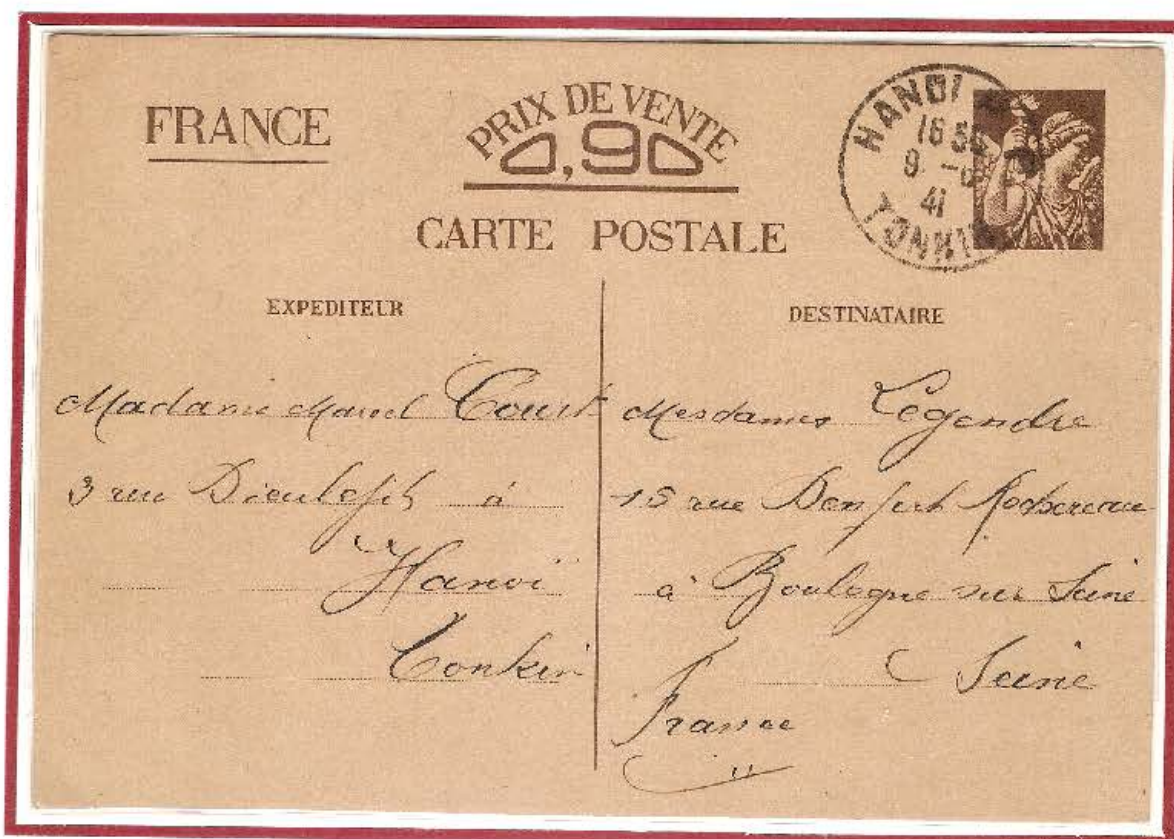 FRANCE
PRIX DE VENTE
0,90
CARTE POSTALE
HANOI
16 30
9 -
41
TONKIN
EXPEDITEUR
Madame Marcel Court
3 rue Dieulefils à
Hanoï
Tonkin
DESTINATAIRE
Mesdames Legendre
15 rue Denfert Rochereau
à Boulogne sur Seine
Seine
France